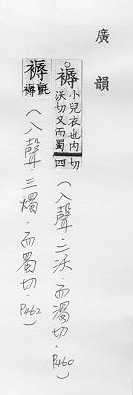 廣韻
褥小兒衣也內沃切又而蜀切四
(入聲·二沃·而濁切·P460)
褥氈褥
(入聲·三燭·而蜀切·P462)